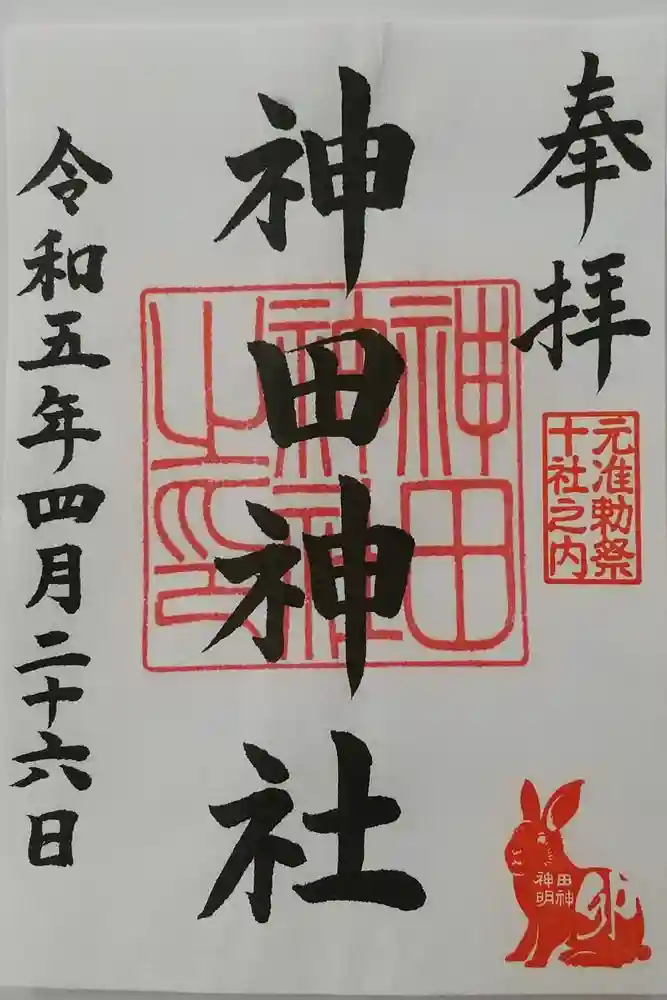 奉拝
元准勅祭
十社之内
神田神社
神田
神社
之印
田神
神明
卯
令和五年四月二十六日